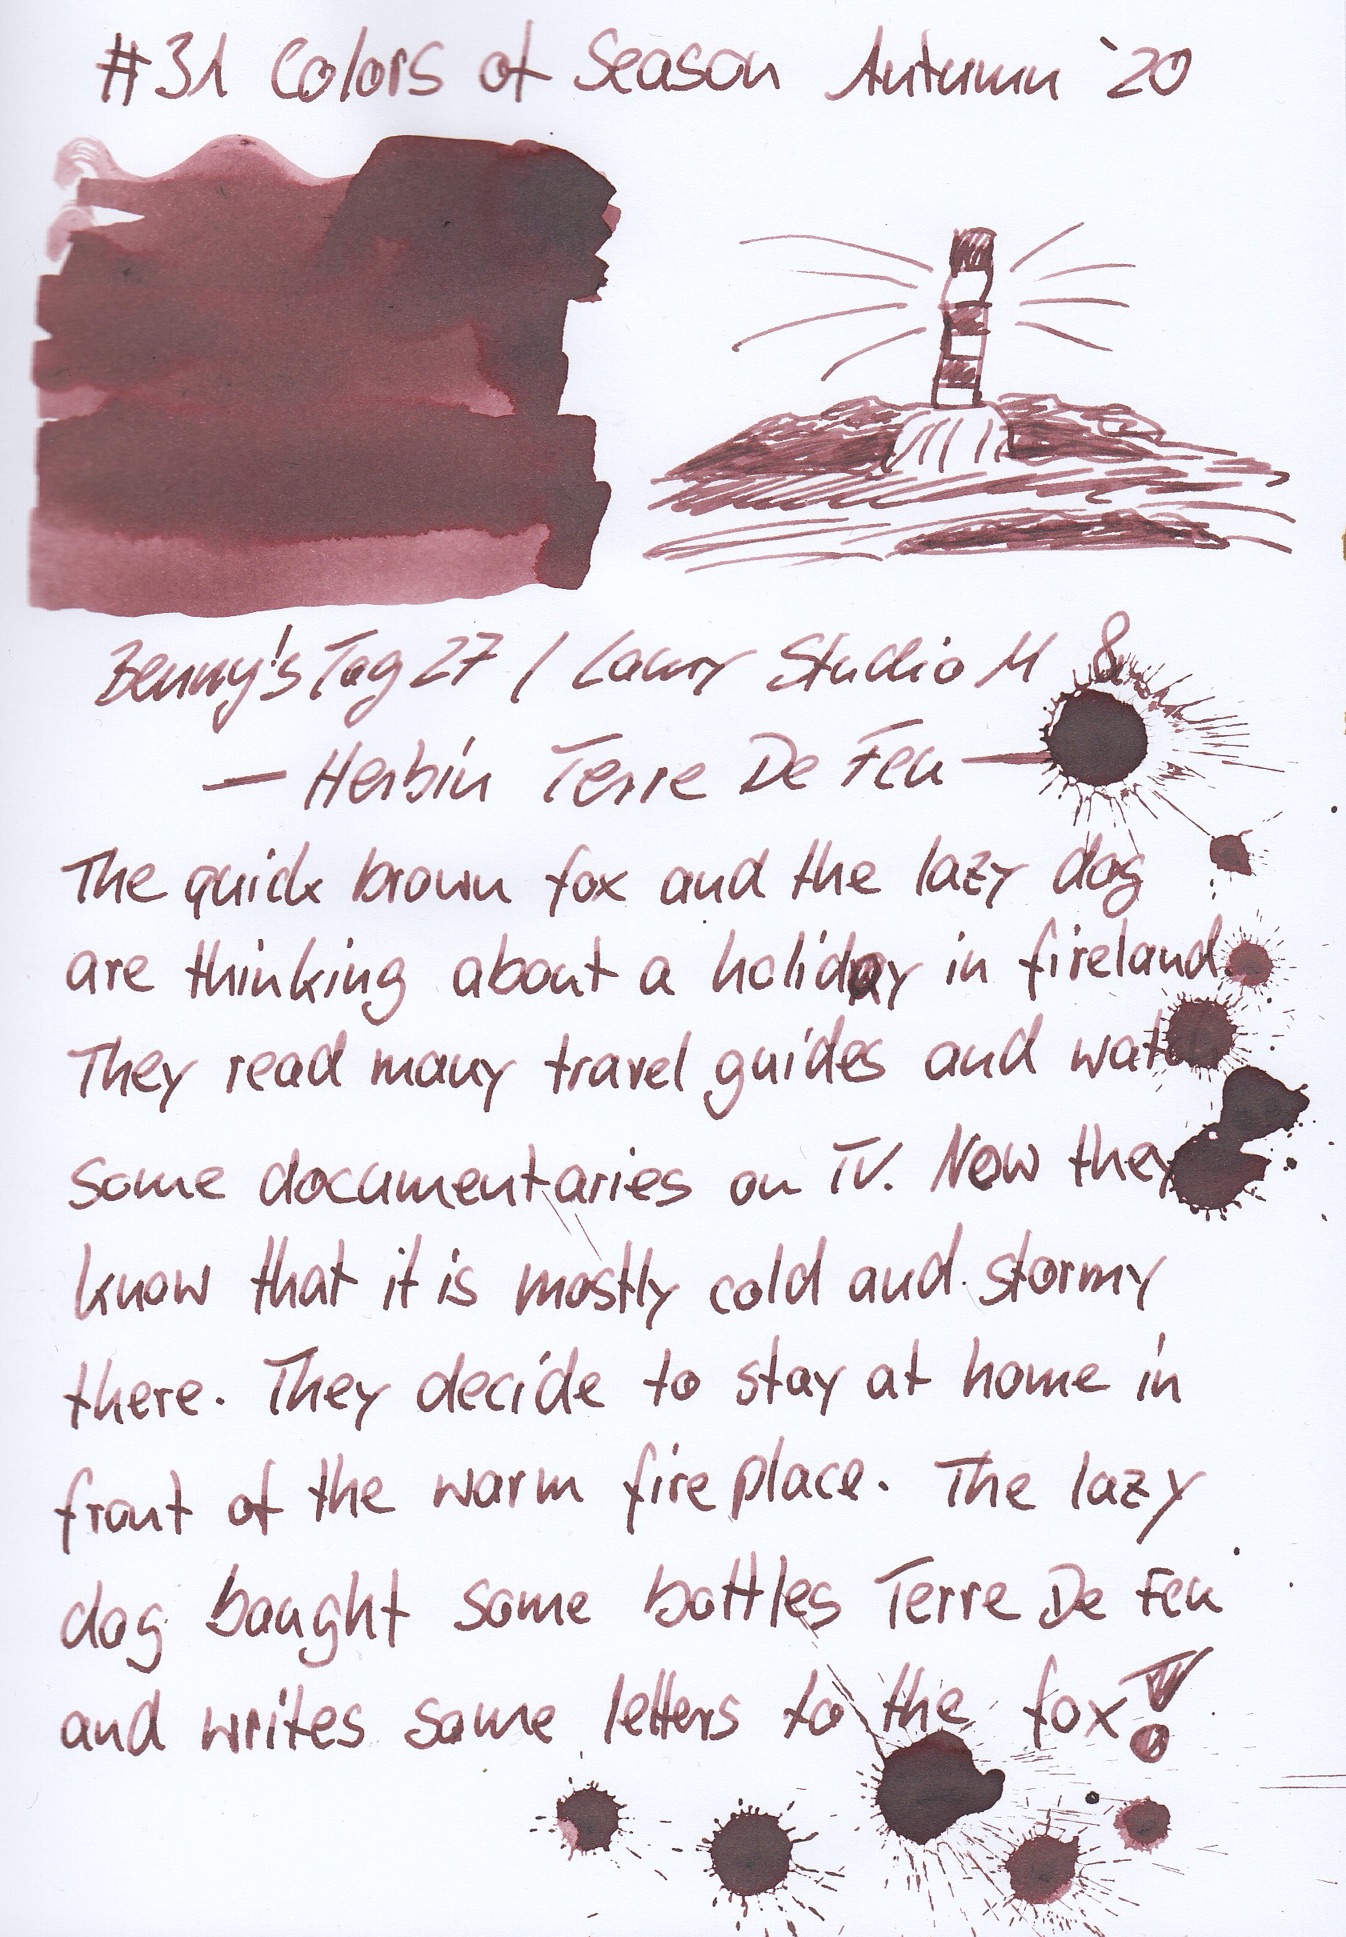 #31 Colors of Season Autumn '20
Benny's Tag 27 / Lamy Studio M &
— Herbin Terre De Feu —
The quick brown fox and the lazy dog
are thinking about a holiday in fireland.
They read many travel guides and
some documentaries on TV. Now they
know that it is mostly cold and stormy
there. They decide to stay at home in
front of the warm fireplace. The lazy
dog bought some bottles Terre De Feu
and writes some letters to the fox!